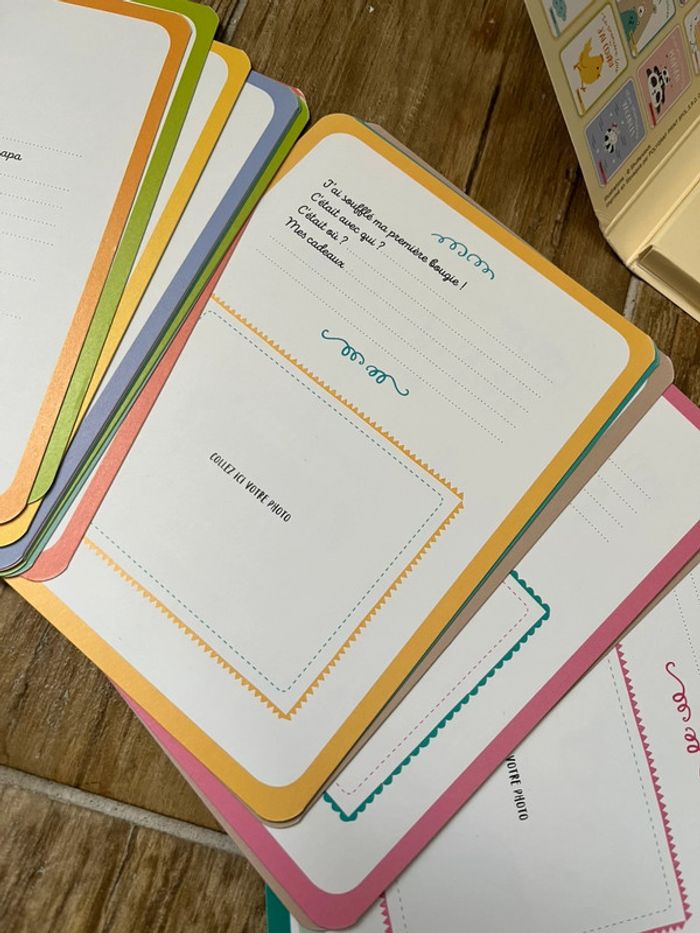 apa
J'ai soufflé ma première bougie !
C'était avec qui ?
C'était où ?
Mes cadeaux
COLLEZ ICI VOTRE PHOTO
VOTRE PHOTO